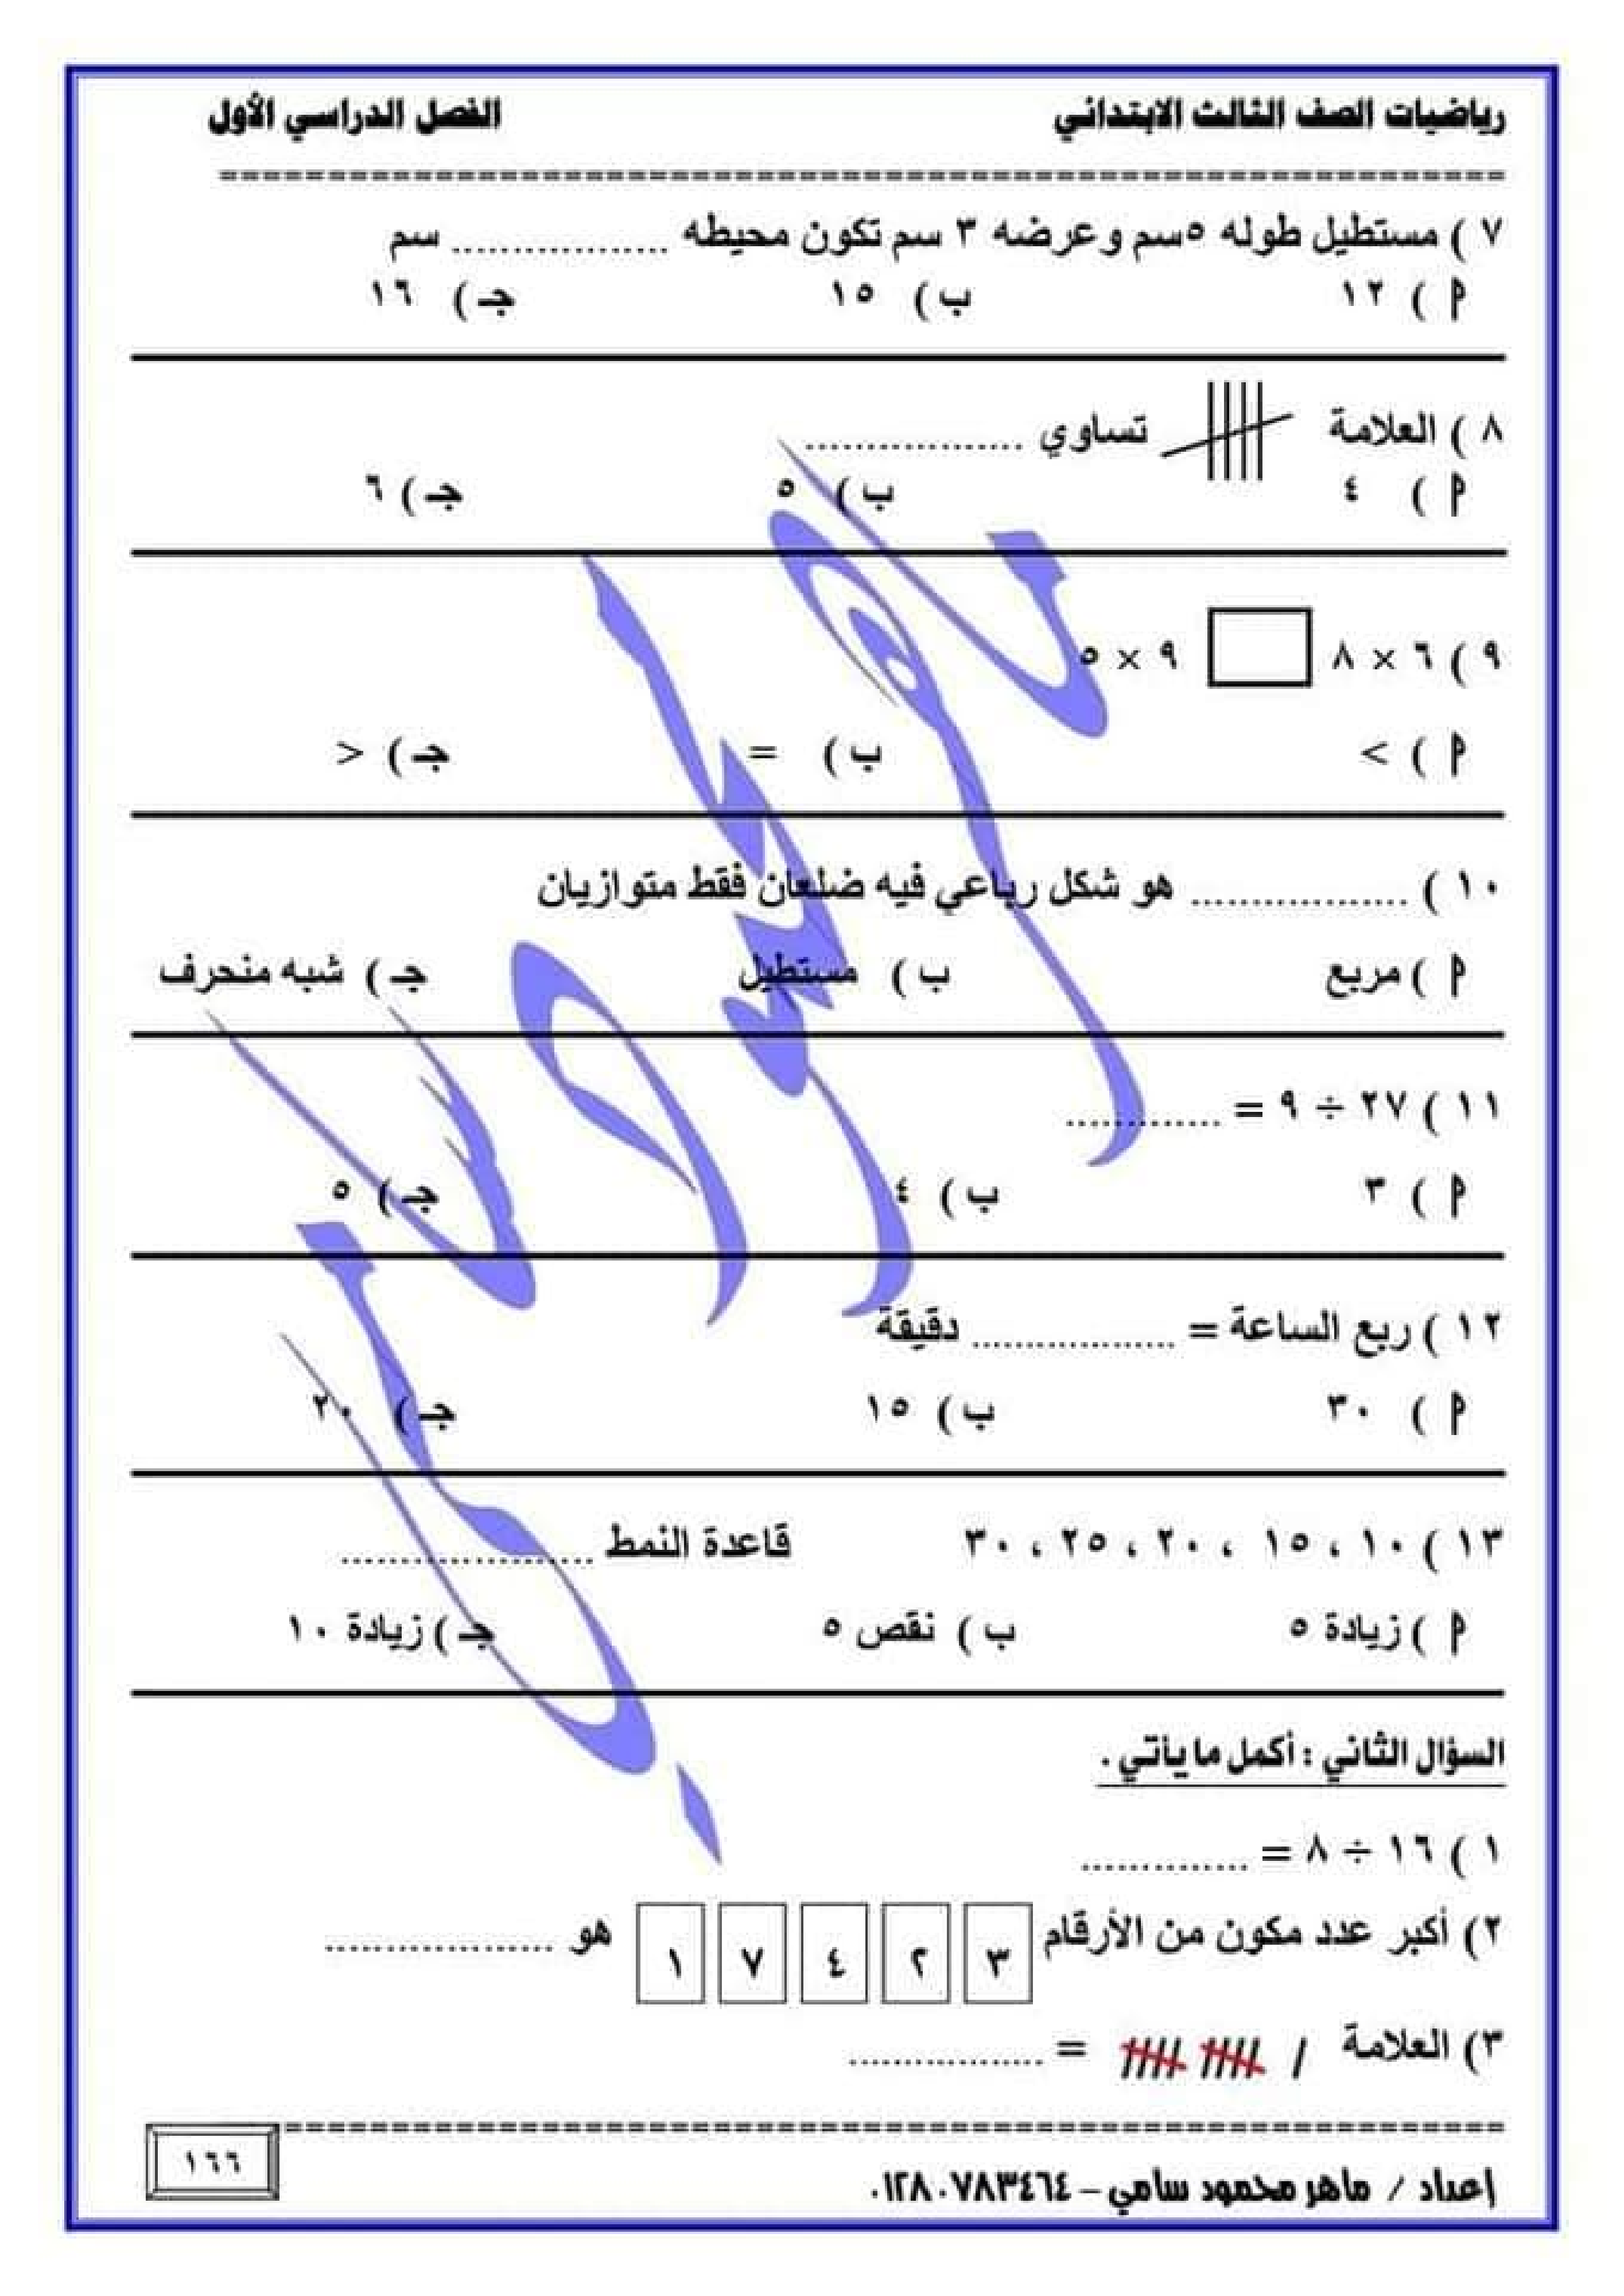 رياضيات الصف الثالث الابتدائي الفصل الدراسي الأول
٧ ) مستطيل طوله ٥سم وعرضه ٣ سم تكون محيطه ................. سم
أ ) ١٢ ب ) ١٥ جـ ) ١٦
٨ ) العلامة تساوي .................
أ ) ٤ ب ) ٥ جـ ) ٦
٩ ) ٦ × ٨ ٩ × ٥
أ ) < ب ) = جـ ) >
١٠ ) ................. هو شكل رباعي فيه ضلعان فقط متوازيان
أ ) مربع ب ) مستطيل جـ ) شبه منحرف
١١ ) ٢٧ ÷ ٩ = ............
أ ) ٣ ب ) ٤ جـ ) ٥
١٢ ) ربع الساعة = ................ دقيقة
أ ) ٣٠ ب ) ١٥ جـ ) ٢٠
١٣ ) ١٠ ، ١٥ ، ٢٠ ، ٢٥ ، ٣٠ قاعدة النمط ....................
أ ) زيادة ٥ ب ) نقص ٥ جـ ) زيادة ١٠
السؤال الثاني : أكمل ما يأتي .
١ ) ١٦ ÷ ٨ = .............
٢) أكبر عدد مكون من الأرقام ٣ ٢ ٤ ٧ ١ هو ..................
٣) العلامة = ...............
إعداد / ماهر محمود سامي – ٠١٢٨٠٧٨٣٤٦٤
١٦٦